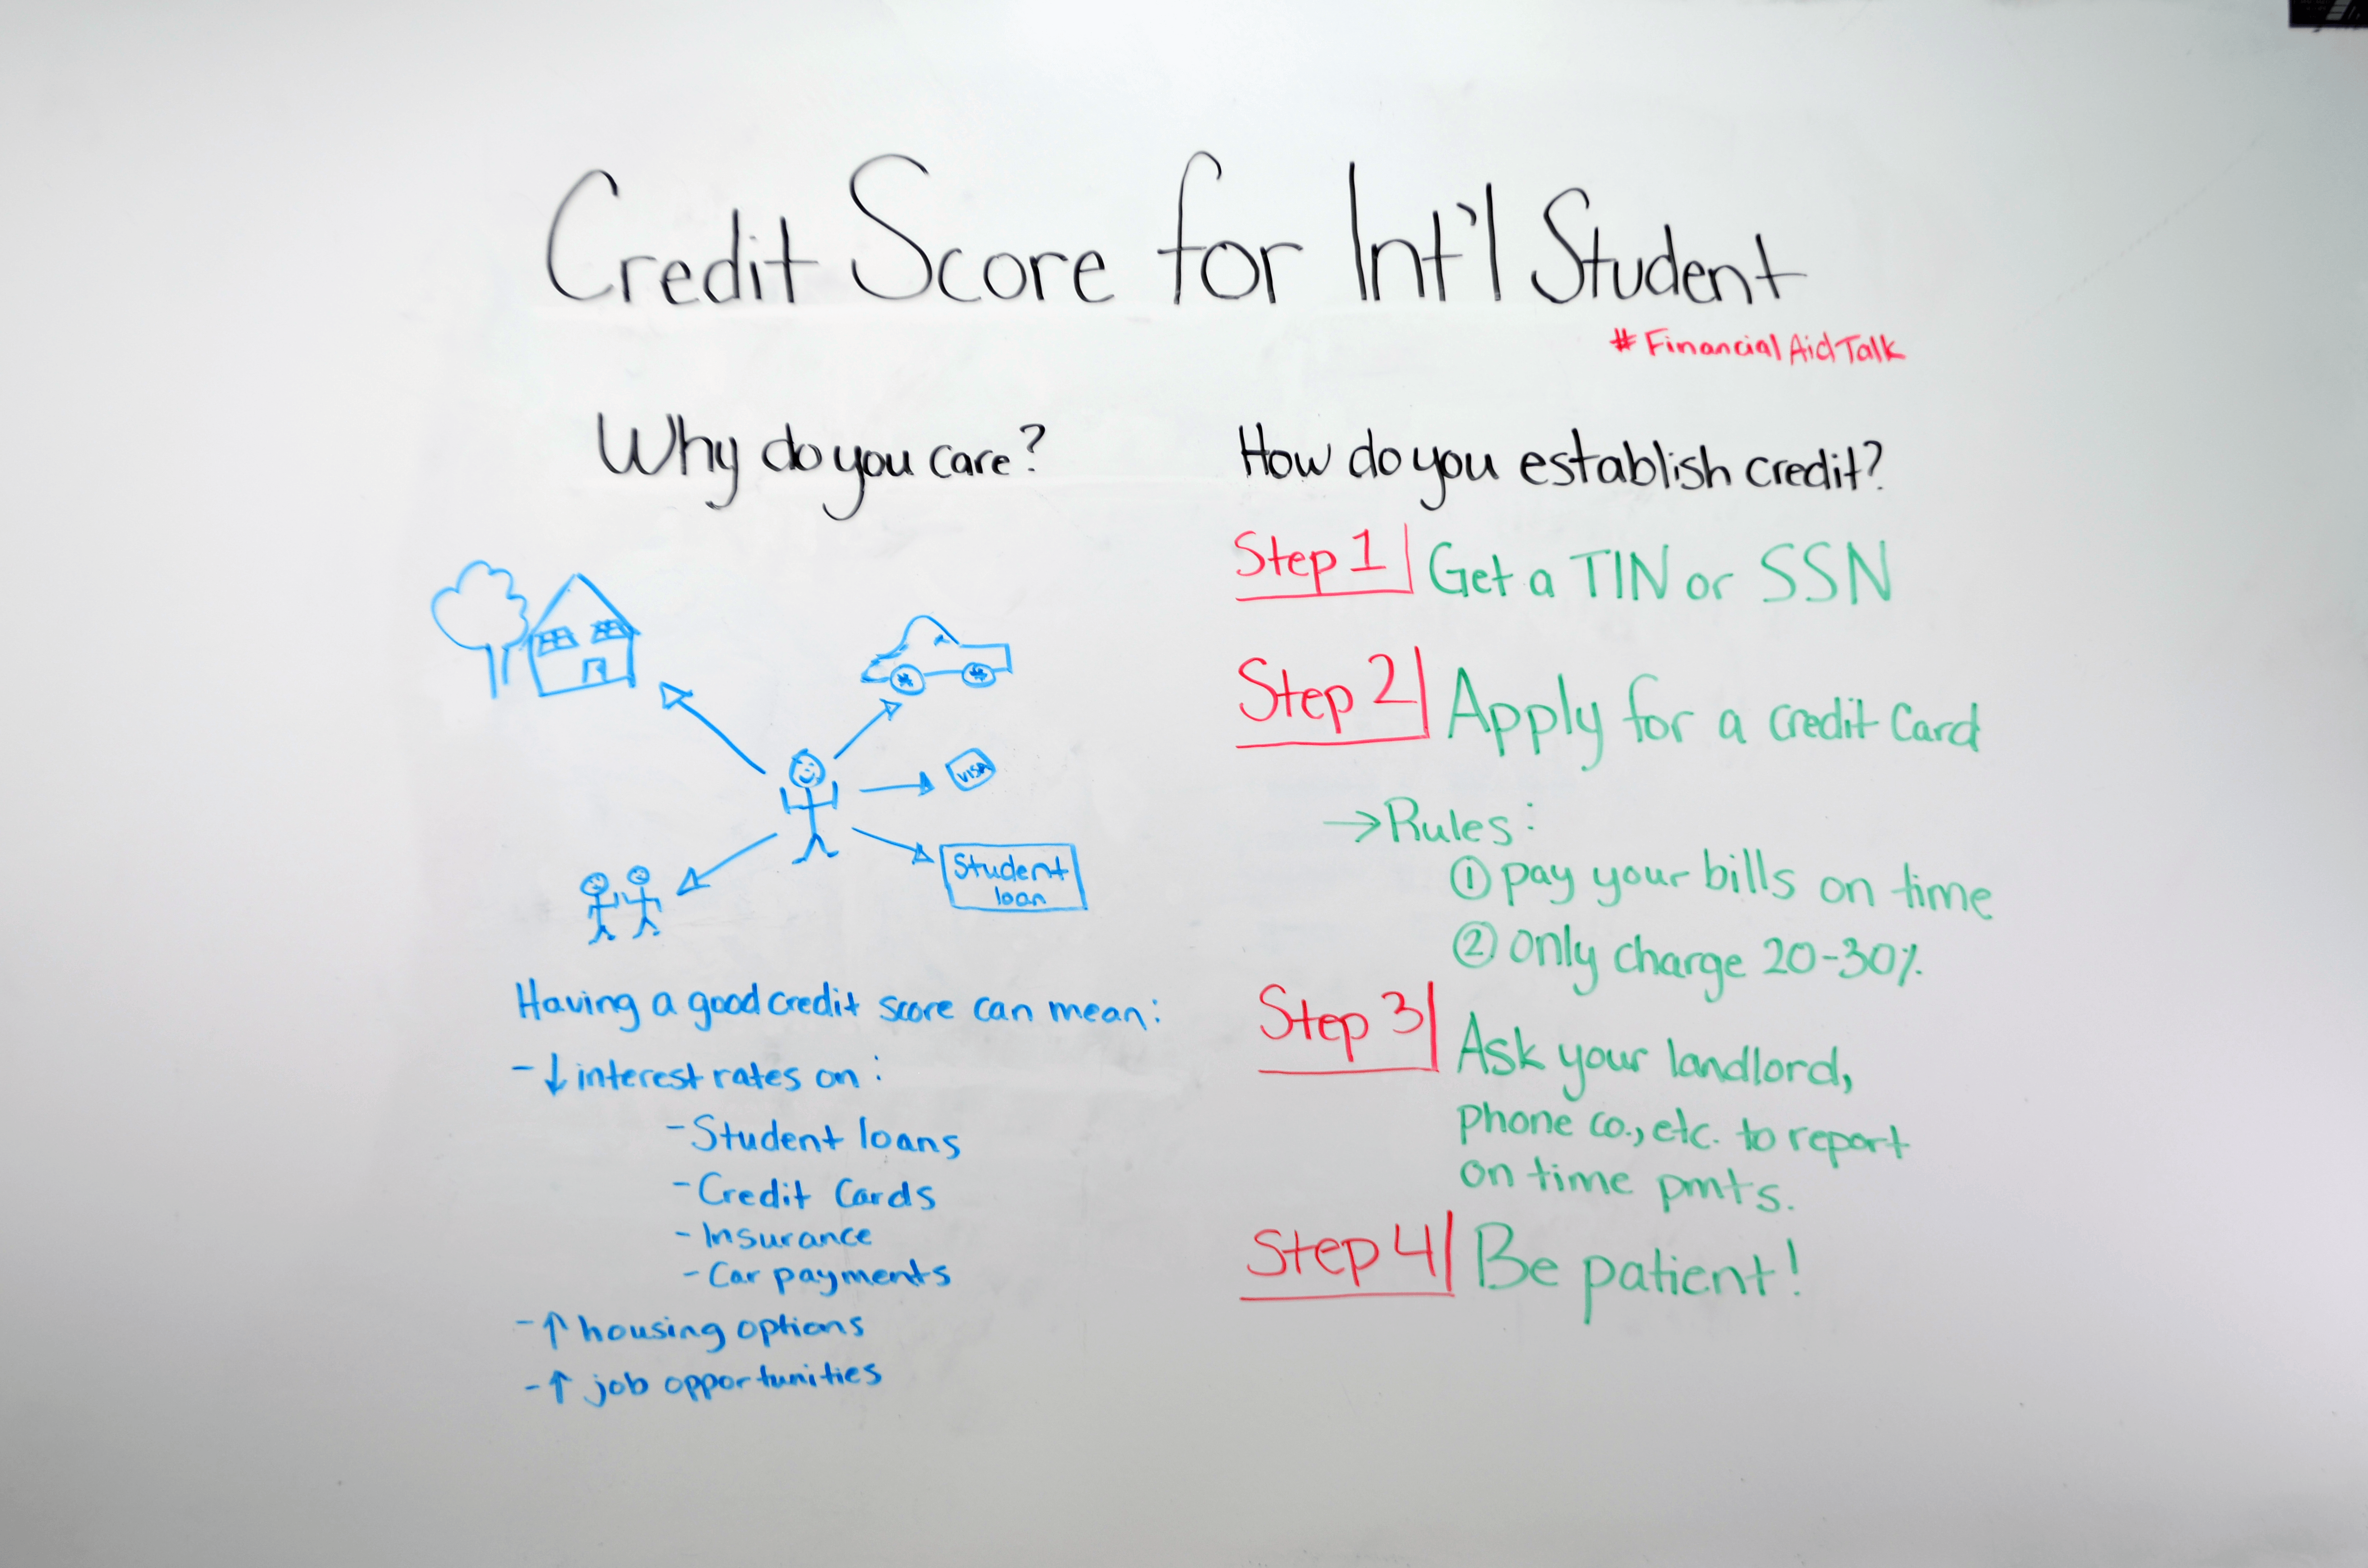 Credit Score for Int'l Student
#FinancialAidTalk
Why do you care?
VISA
Student
loan
Having a good credit score can mean:
- ↓ interest rates on:
- Student loans
- Credit Cards
- Insurance
- Car payments
- ↑ housing options
- ↑ job opportunities
How do you establish credit?
Step 1 Get a TIN or SSN
Step 2 Apply for a credit Card
→ Rules:
① pay your bills on time
② only charge 20-30%
Step 3 Ask your landlord,
phone co., etc. to report
on time pmts.
Step 4 Be patient!